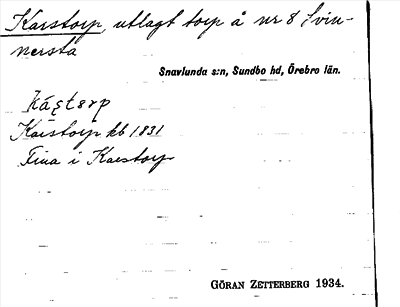 Karstorp, utlagt torp å nr 8 Svin-
nersta
Snavlunda s:n, Sundbo hd, Örebro län.
Karstorp kb 1831
Tina i Karstorp
GÖRAN ZETTERBERG 1934.